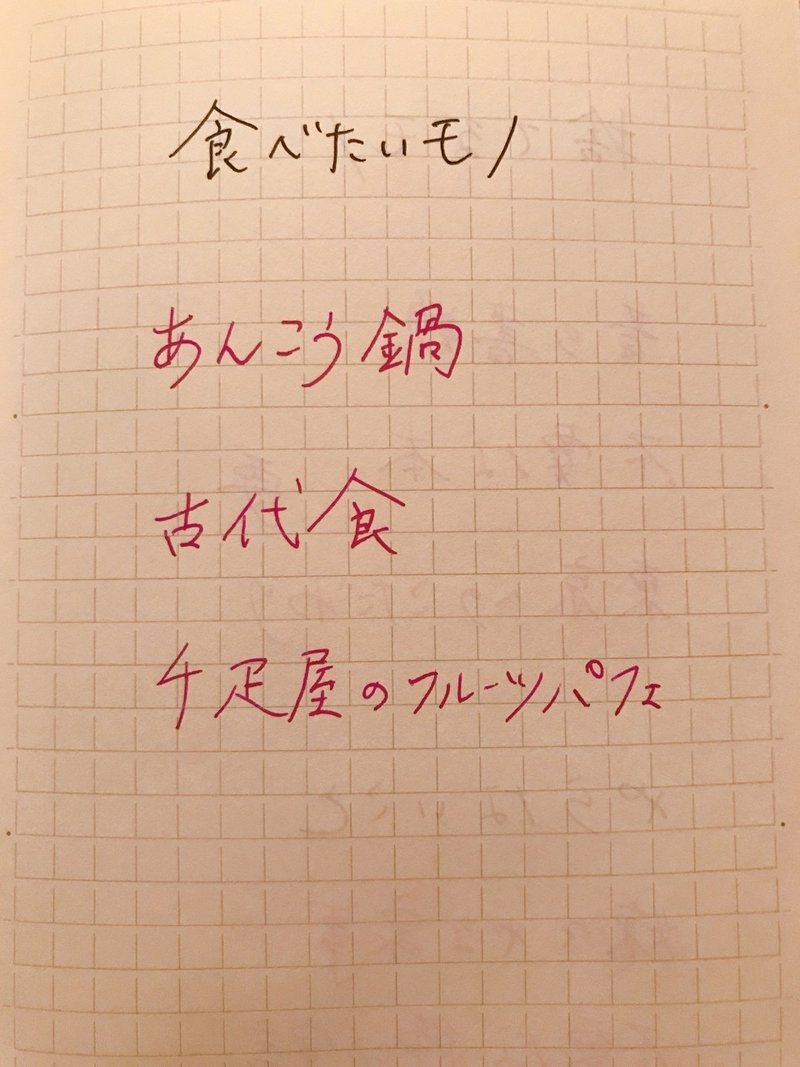 食べたいモノ
あんこう鍋
古代食
千疋屋のフルーツパフェ